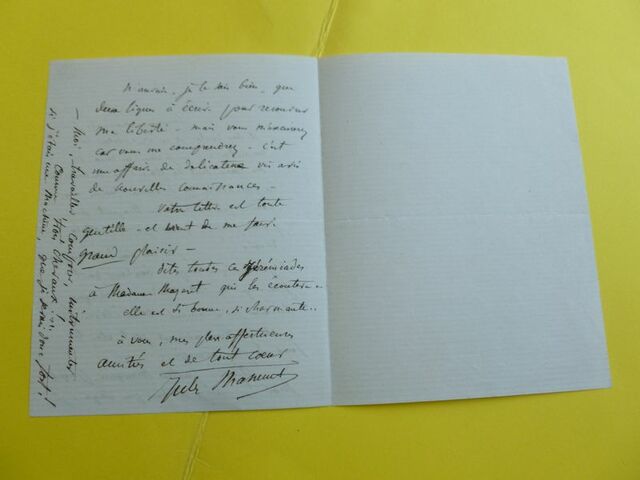 n'aurais, je le sais bien, que
deux lignes à écrire pour reconquérir
ma liberté - mais vous m'excuserez
car vous me comprendrez - c'est
une affaire de délicatesse vis à vis
de nouvelles connaissances -
votre lettre est toute
gentille - et vient de me faire
grand plaisir -
dites toutes ces jérémiades
à Madame qui les écoutera -
elle est si bonne, si charmante -
à vous, mes plus affectueuses
amitiés et de tout cœur
Jules Massenet
- Moi, travailler, composer, instrumenter
comme trois chevaux !...
si j'étais une machine, que je serais donc fort !